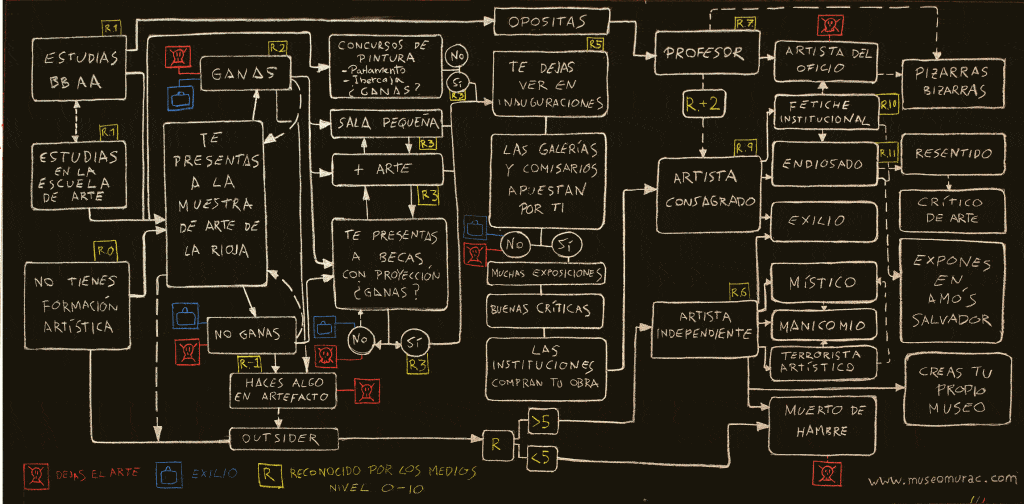 R.1
ESTUDIAS
BB AA
R.1
ESTUDIAS
EN LA
ESCUELA
DE ARTE
R.0
NO TIENES
FORMACIÓN
ARTÍSTICA
R.2
GANAS
TE
PRESENTAS
A LA
MUESTRA
DE ARTE DE
LA RIOJA
NO GANAS
R-1
HACES ALGO
EN ARTEFACTO
OUTSIDER
CONCURSOS DE
PINTURA
-Parlamento
-Ibercaja
¿GANAS?
No
Sí
R.3
SALA PEQUEÑA
R.3
+ ARTE
R.3
TE PRESENTAS
A BECAS
CON PROYECCIÓN
¿GANAS?
No
Sí
R3
OPOSITAS
R.5
TE DEJAS
VER EN
INAUGURACIONES
LAS GALERÍAS
Y COMISARIOS
APUESTAN
POR TI
No
Sí
MUCHAS EXPOSICIONES
BUENAS CRÍTICAS
LAS
INSTITUCIONES
COMPRAN TU OBRA
R
>5
<5
R.7
PROFESOR
R+2
R.9
ARTISTA
CONSAGRADO
R.6
ARTISTA
INDEPENDIENTE
ARTISTA DEL
OFICIO
FETICHE
INSTITUCIONAL
R.10
ENDIOSADO
R.11
EXILIO
MÍSTICO
MANICOMIO
TERRORISTA
ARTÍSTICO
MUERTO DE
HAMBRE
PIZARRAS
BIZARRAS
RESENTIDO
CRÍTICO
DE ARTE
EXPONES
EN
AMÓS
SALVADOR
CREAS TU
PROPIO
MUSEO
DEJAS EL ARTE
EXILIO
R
RECONOCIDO POR LOS MEDIOS
NIVEL 0-10
www.museomurac.com